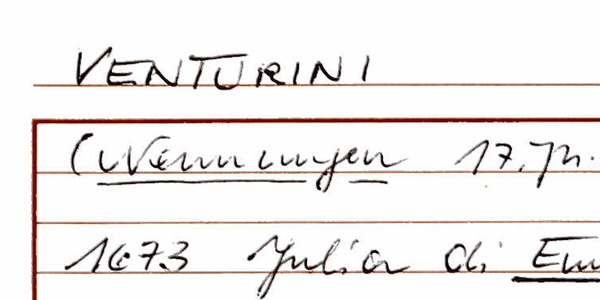 VENTURINI
(Wenningen 17. Jh.
1673 Julia di Em